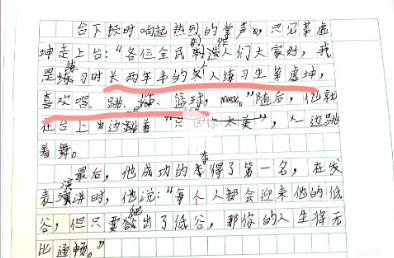 台下按时响起热烈的掌声，只见蔡虚
坤走上台："各位全民制造人们大家好，我
是练习时长两年半的个人练习生蔡虚坤，
喜欢唱、跳、、篮球，music。"随后，他就
在台上边跳着"只因你太美"，一边跳
着舞。
最后，他成功的拿得了第一名，在发
表演讲时，他说："每个人都会迎来他的低
谷，但只要你出了低谷，那你的人生将无
比通畅。"